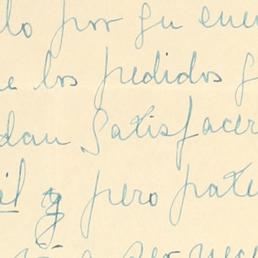 lo por su cuen
e los pedidos q
dan Satisfacer
il y pero pate